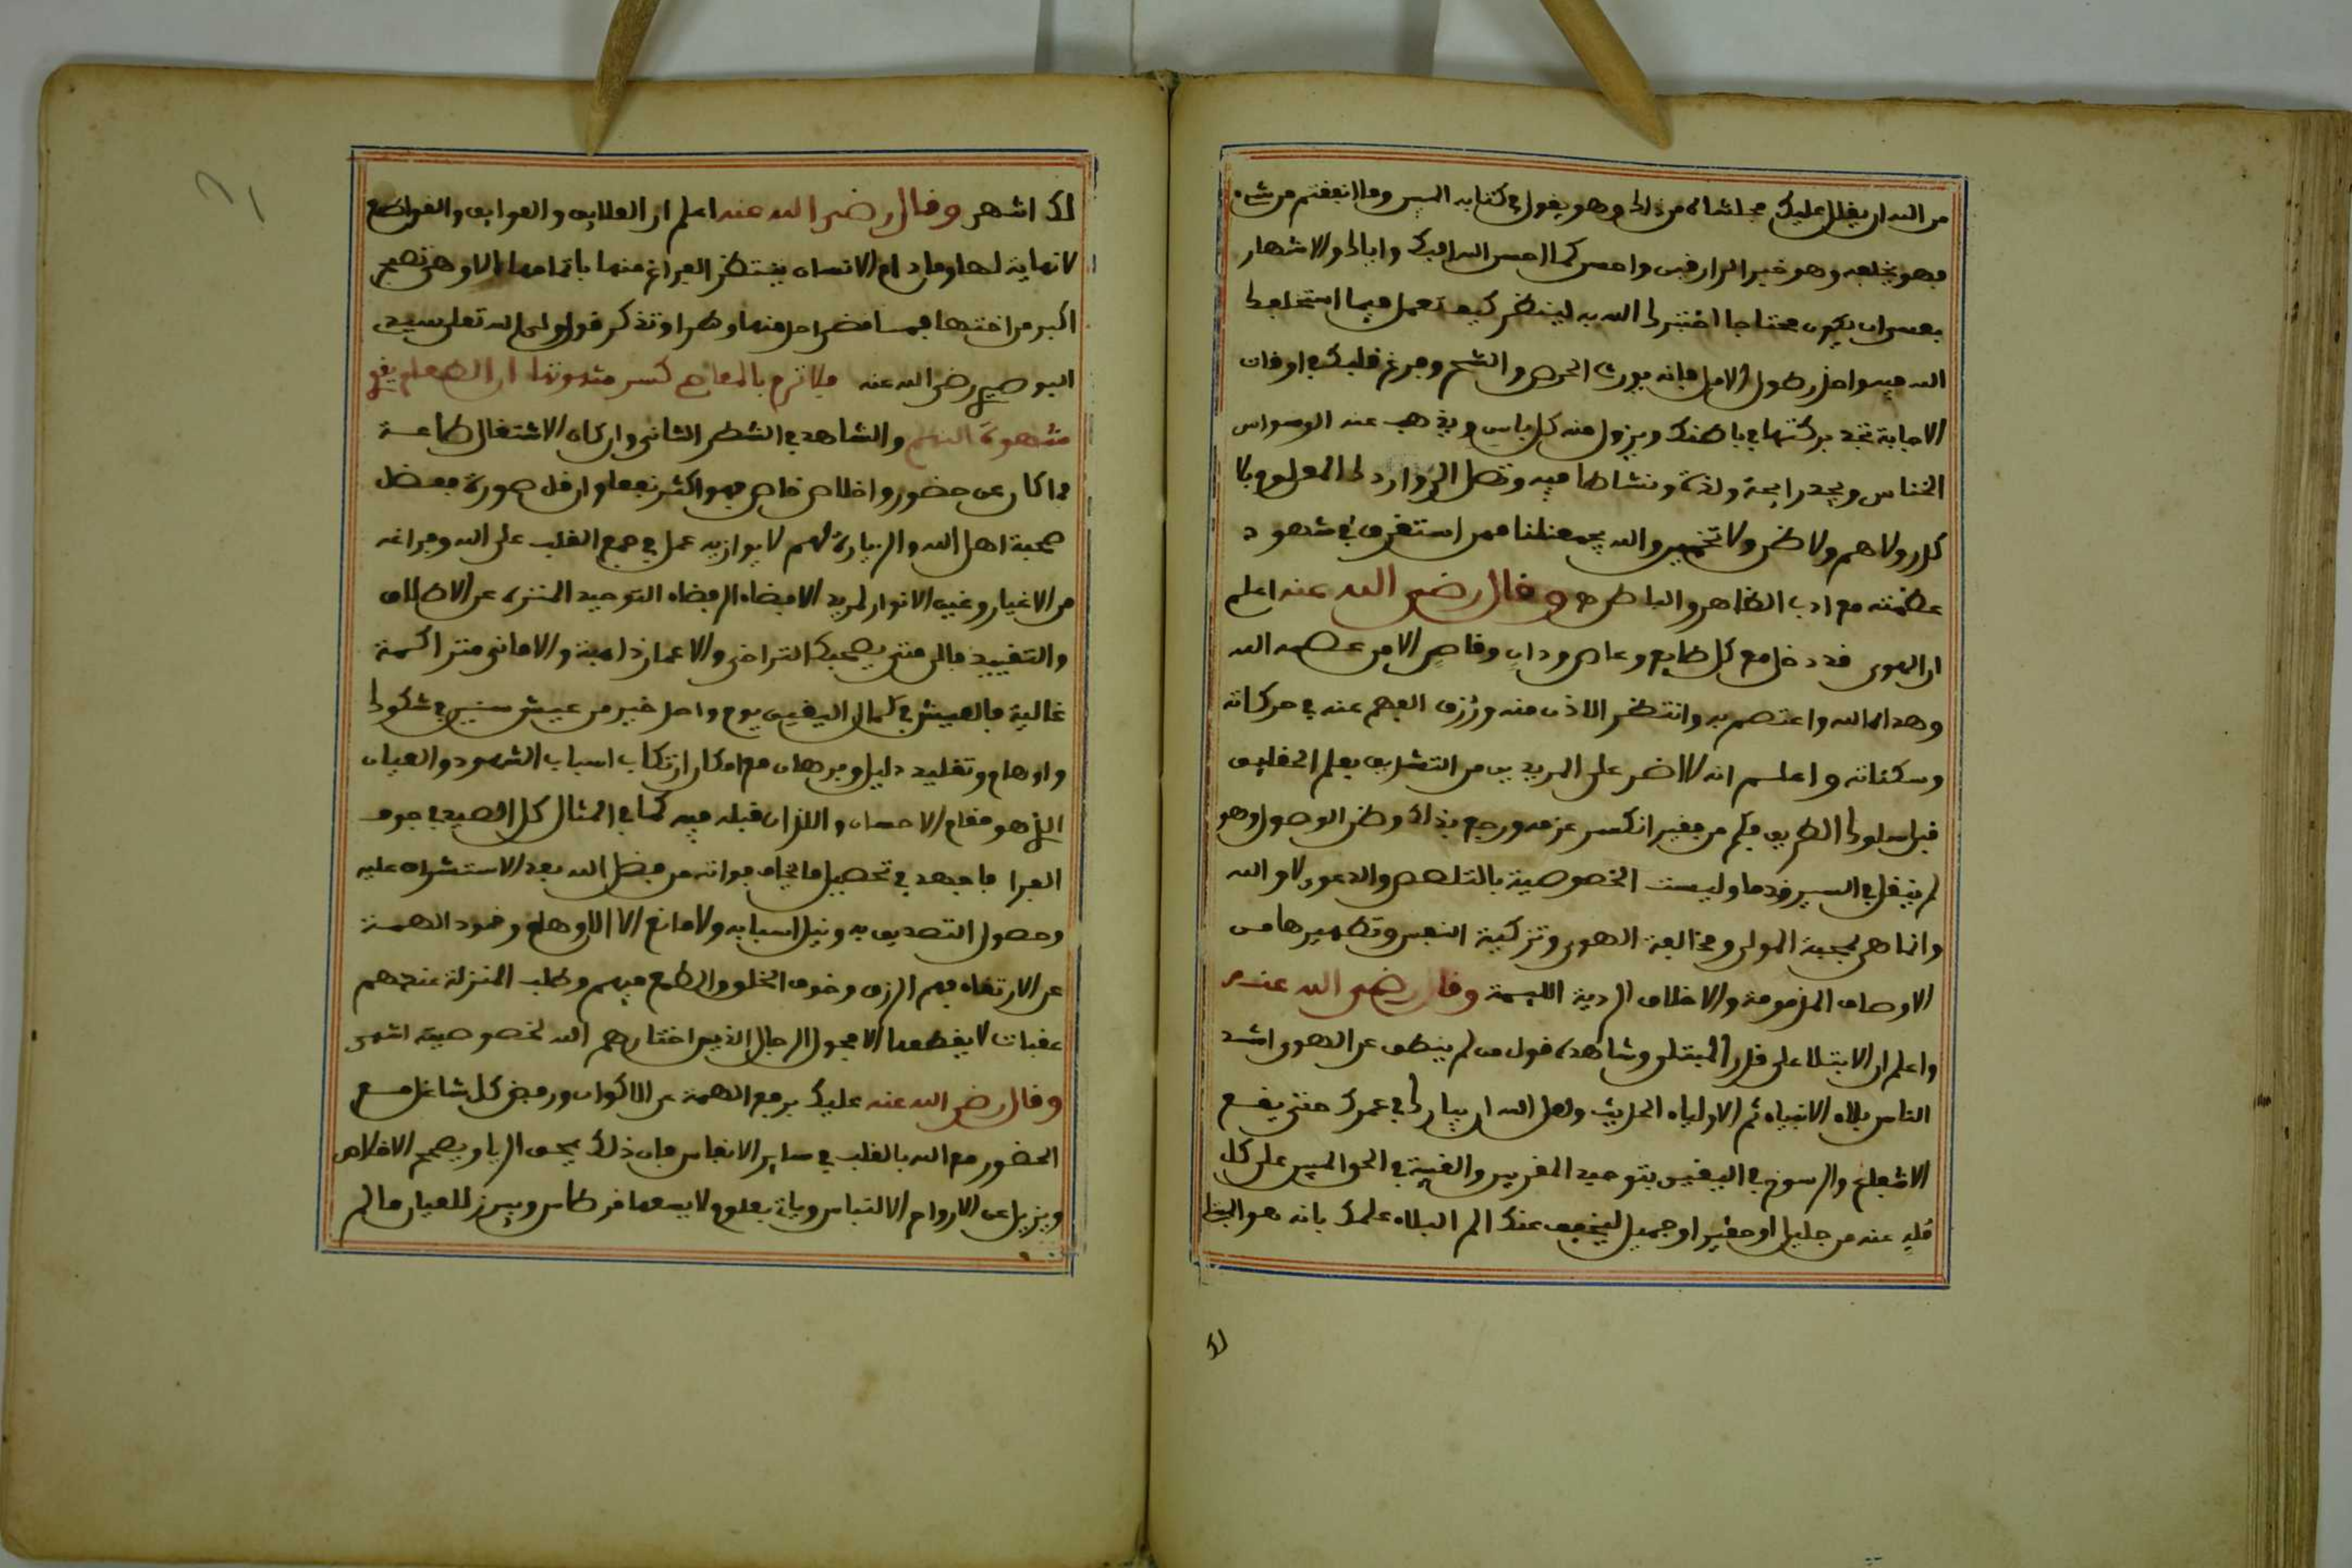 من الله ان يقلل عليك فحاشاه من ذلك وهو يقول في كتابه المبين وما انفقتم من شيء
فهو يخلفه وهو خير الرازقين واحسن كما احسن الله اليك واياك والاشهار
فعسى ان يكون محتاجا اختبرك الله به لينظر كيف تعمل فيما استخلفك
الله فيه واحذر طول الامل فانه يورث الحرص والشح وفرغ قلبك في اوقات
الاجابة تجد بركتها في باطنك ويزول منه كل باس ويذهب عنه الوسواس
الخناس ويجد رايحة ولذة ونشاطا فيه وتصل الزوار دلك المعلوم بلا
كدر ولا هم ولا ظن ولا تخمين والله يجمعنا ممن استغرق في شهود
عظمته مع ادب الظاهر والباطن وقال رضي الله عنه اعلم
ان الهوى قد دخل مع كل طايع وعاص ودان وقاص الا من عصمه الله
وهداه الله واعتصم به وانتظر الاذن منه ورزق الفهم عنه في حركاته
وسكناته واعلم انه لا اضر على المريدين من التشوق بعلم الحقايق
قبل سلوك الطريق فكم من فقير انكسر عزمه ورجع بذلك وظن الوصول وهو
لم ينقل في السير قدما وليست الخصوصية بالتلصص والدعوى لا والله
وانما هي بمحبة المولى ومخالفة الهوى وتزكية النفس وتطهيرها من
الاوصاف المذمومة والاخلاق الردية الليمة وقال رضي الله عنه
واعلم ان الابتلا على قدر المبتلى وشاهده قول من لم ينطق عن الهوى اشد
الناس بلاء الانبياء ثم الاولياء الحديث ولعل الله ان يبارك في عمرك حتى يقع
الاشعاع والرسوخ في اليقين بتوحيد المقربين والغيبة في الحق المبين على كل
فان عنه من جليل او حقير او جميل ليخفف عنك الم البلاء علمك بانه هو المبتلي
لك
لك اشهر وقال رضي الله عنه اعلم ان العلايق والعوايق والقواطع
لا نهاية لها وما دام الانسان ينتظر الفراغ منها باتمامها الا وهي تصير
اكبر من اختها فما قضى احد منها وطرا وتذكر قول ولي الله تعلى سيدي
البوصيري رضي الله عنه فلا ترم بالمعاصي كسر شهوتها ان الطعام يقوي
شهوة النهم والشاهد في الشطر الثاني وان كان الاشتغال طاعة
فما كان عن حضور واخلاص خاص فهو اكثر نفعا وان قل صورة ففضل
صحبة اهل الله والزيارة لهم لا يوازيه عمل في جمع القلب على الله وفراغه
من الاغيار وغيب الانوار لمريد الافضاء الى فضاء التوحيد المنزه عن الاطلاق
والتقييد فالى متى يصحبك التراخي والاعمار ذاهبة والاماني متراكمة
غالية فالعيش في كمال اليقين يوم واحد خير من عيش سنين في شكوك
واوهام وتقليد دليل وبرهان مع امكان ارتكاب اسباب الشهود والعيان
الذي هو مقام الاحسان واللذان قبله فيه كما في المثال كل الصيد في جوف
الفرا فاجهد في تحصيل ما تخاف فواته من فضل الله بعد الاستشراف عليه
وحصول التصديق به ونيل اسبابه ولا مانع الا الاوهام وخمود الهمة
عن الارتقاء فهم الرزق وخوف الخلق والطمع فيهم وطلب المنزلة عندهم
عقبات لا يقطعها الا فحول الرجال الذين اختارهم الله لخصوصيته اشهر
وقال رضي الله عنه عليك برفع الهمة عن الاكوان ورفض كل شاغل مع
الحضور مع الله بالقلب في ساير الانفاس فان ذلك يمحق الريا ويصحح الاخلاص
ويزيل عن الارواح الالتباس وياتي بعلوم لا يسعها قرطاس ويبرز للعيان ما لم